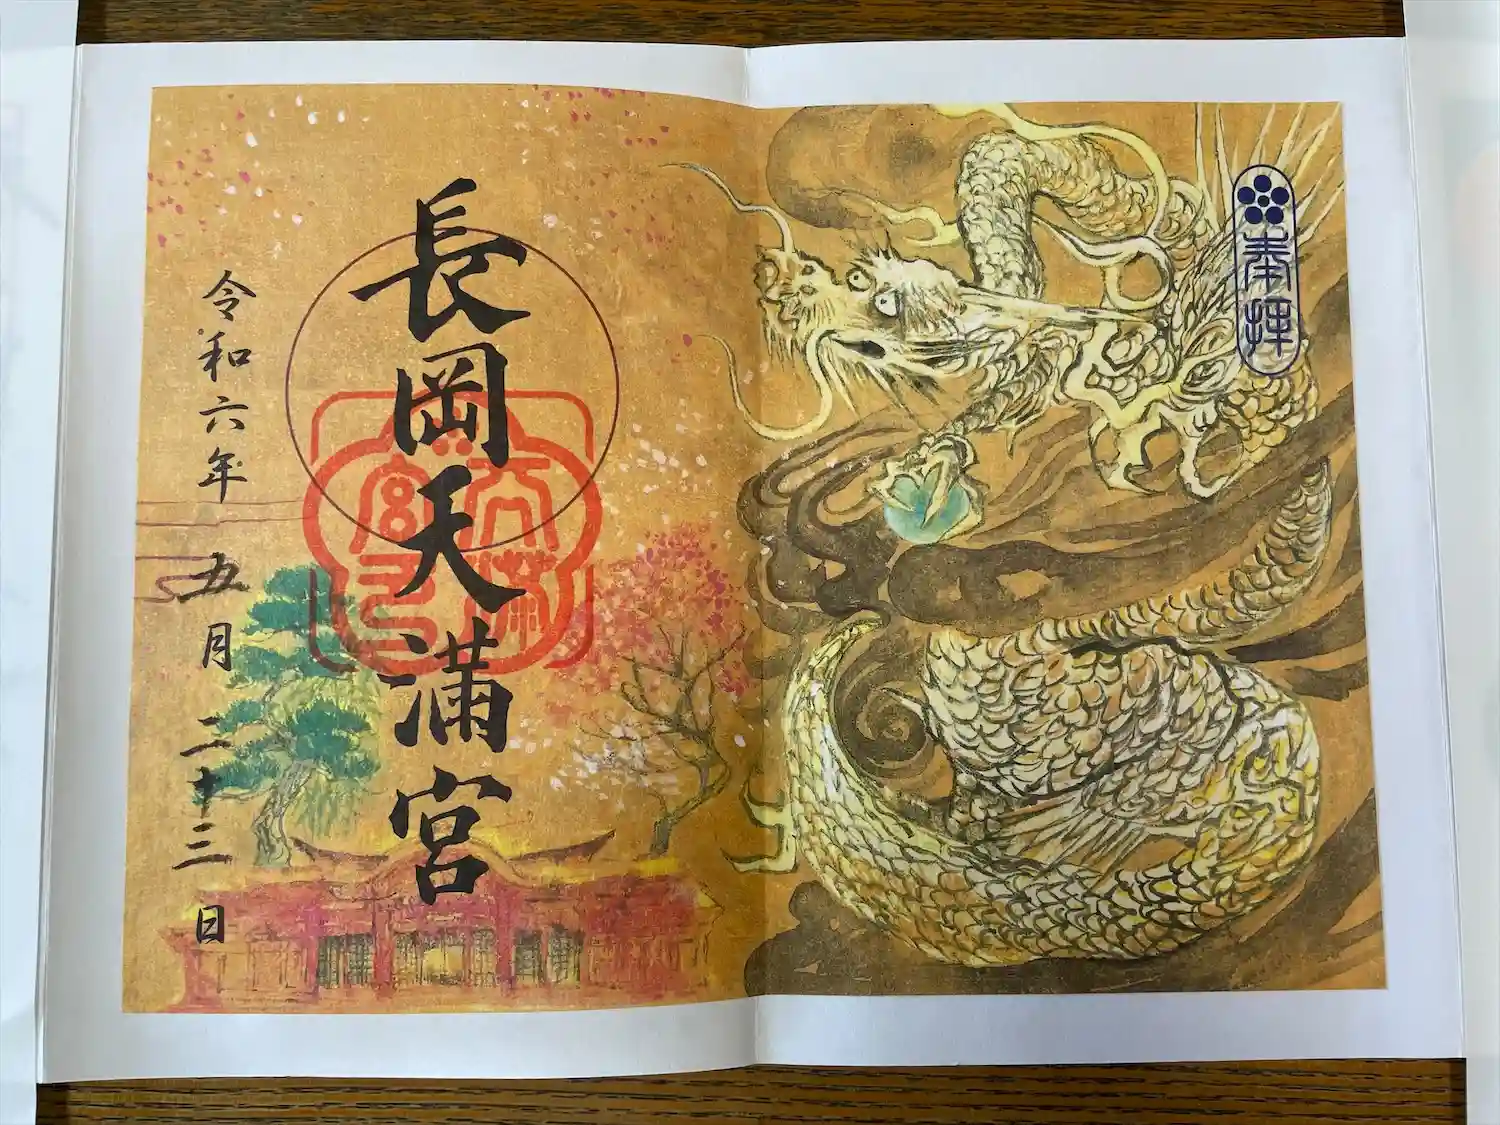 奉拝
長岡天満宮
令和六年五月二十三日